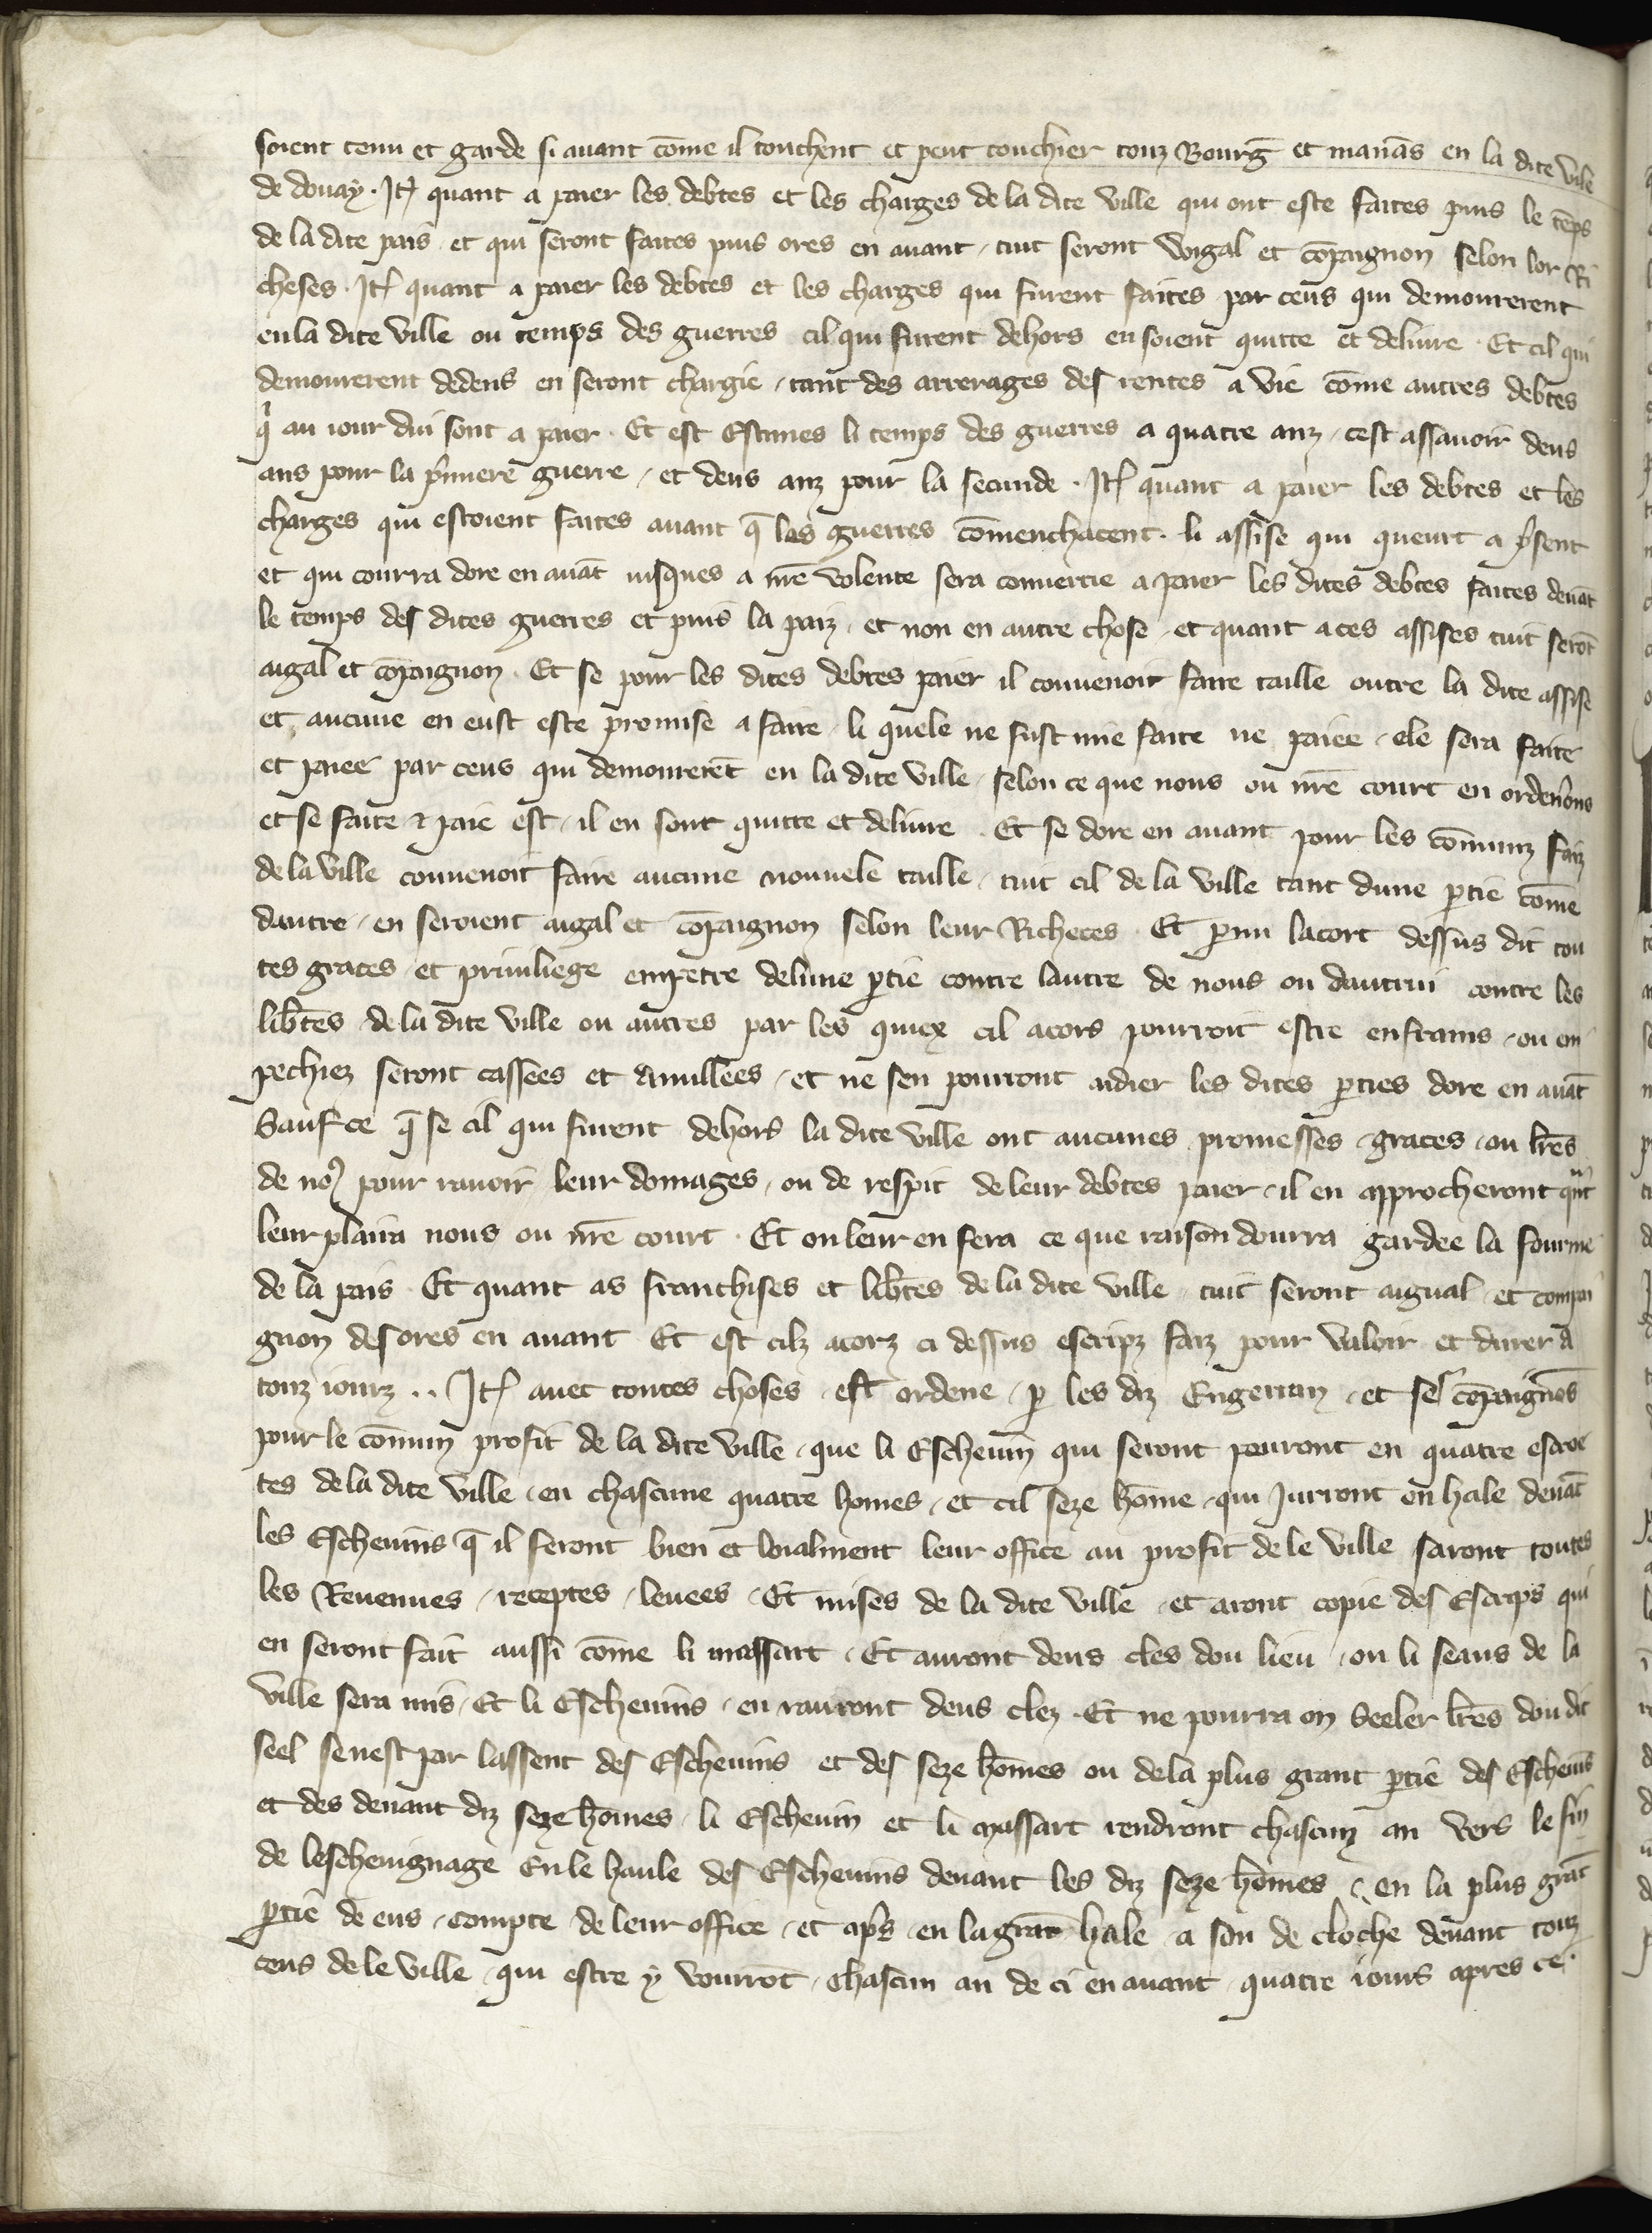 soient tenu et garde si auant cōme il touchent et peut touchier touz Bourḡ et manās en la dite vile
de douay. Itē quant a paier les debtes et les charges de la dite ville qui ont este faites puis le tēps
de la dite pais et qui seront faites puis ores en auant, tuit seront Aigal et cōpaignon selon lor Ri
cheses. Itē quant a paier les debtes et les charges qui furent faites par ceus qui demourerent
en la dite ville ou temps des guerres cil qui furent dehors en soient quitte et deliure. Et cil qui
demourerent dedens en seront chargie, tant des arrerages des rentes a vie cōme autres debtes
q̄ au iour dui sont a paier. Et est Estimes li temps des guerres a quatre anz, cest assauoir deus
ans pour la p̄miere guerre, et deus anz pour la secunde. Itē quant a paier les debtes et les
charges qui estoient faites auant q̄ les guerres cōmenchacent. li assise qui queurt a p̄sent
et qui courra dore en auāt iusques a nr̄e volente sera conuertie a paier les dites debtes faites deuāt
le temps des dites guerres et puis la paiz, et non en autre chose, et quant a ces assises tuit serōt
aigal et cōpaignon. Et se pour les dites debtes paier il conuenoit faire taille outre la dite assise
et aucune en eust este promise a faire, li quele ne fust mie faite ne paiee, ele sera faite
et paiee par ceus qui demourerēt en la dite ville, selon ce que nous ou nr̄e court en orden̄ons
et se faite ⁊ paie est, il en sont quitte et deliure. Et se dore en auant pour les cōmunz faiz
de la ville conuenoit faire aucune nouuele taille, tuit cil de la ville tant dune ꝑtie cōme
dautre, en seroient aigal et cōpaignon selon leur Richeces. Et ꝑmi lacort dessus dit tou
tes graces et priuiliege empetre de lune ꝑtie contre lautre de nous ou dautrui contre les
lib̄tes de la dite ville ou autres par les quiex cil acors pourroit estre enfrains, ou em
pechiez seront cassees et Anullees, et ne sen pourront aidier les dites ꝑties dore en auāt
Sauf ce q̄ se cil qui furent dehors la dite ville ont aucunes promesses, graces, ou lr̄es
de noꝰ pour rauoir leur domages, ou de respit de leur debtes paier, il en approcheront qn̄t
leur plaira nous ou nr̄e court. Et on leur en fera ce que raison dourra gardee la fourme
de la pais. Et quant as franchises et lib̄tes de la dite ville, tuit seront aigual et compai
gnon des ores en auant Et est cilz acorz ci dessus escripz faiz pour valoir et durer a
touz iourz .. Itē auec toutes choses est ordene, ꝑ les diz Engerran, et ses cōpaignōs
pour le cōmun profit de la dite ville, que li Escheuin qui seront penront en quatre escroe
tes de la dite ville, en chascune quatre homes, et cil seze hōme, qui Iurront en hale deuāt
les Escheuins q̄ il feront bien et loialment leur office au profit de le ville saront toutes
les Reuenues, receptes, leuees, Et mises de la dite ville, et aront copie des Escrips qui
en seront fait aussi cōme li massart, Et auront deus cles dou lieu, ou li seaus de la
ville sera mis, Et li Escheuins, en rauront deus clez. Et ne pourra on Seeler lr̄es dou dit
seel se nest par lassent des Escheuins et des seze hōmes ou de la plus grant ꝑtie des Escheuīs
et des deuant diz seze hōmes, li Escheuin et li massart rendront chascun an vers le fin
de lescheuignage En le haule des Escheuins deuant les diz seze hōmes, en la plus grāt
ꝑtie de eus, compte de leur office, et ap̄s en la grāt hale, a son de cloche deuant touz
ceus de le ville, qui estre y vourrōt, Chascun an de ci en auant, quatre iours apres ce.